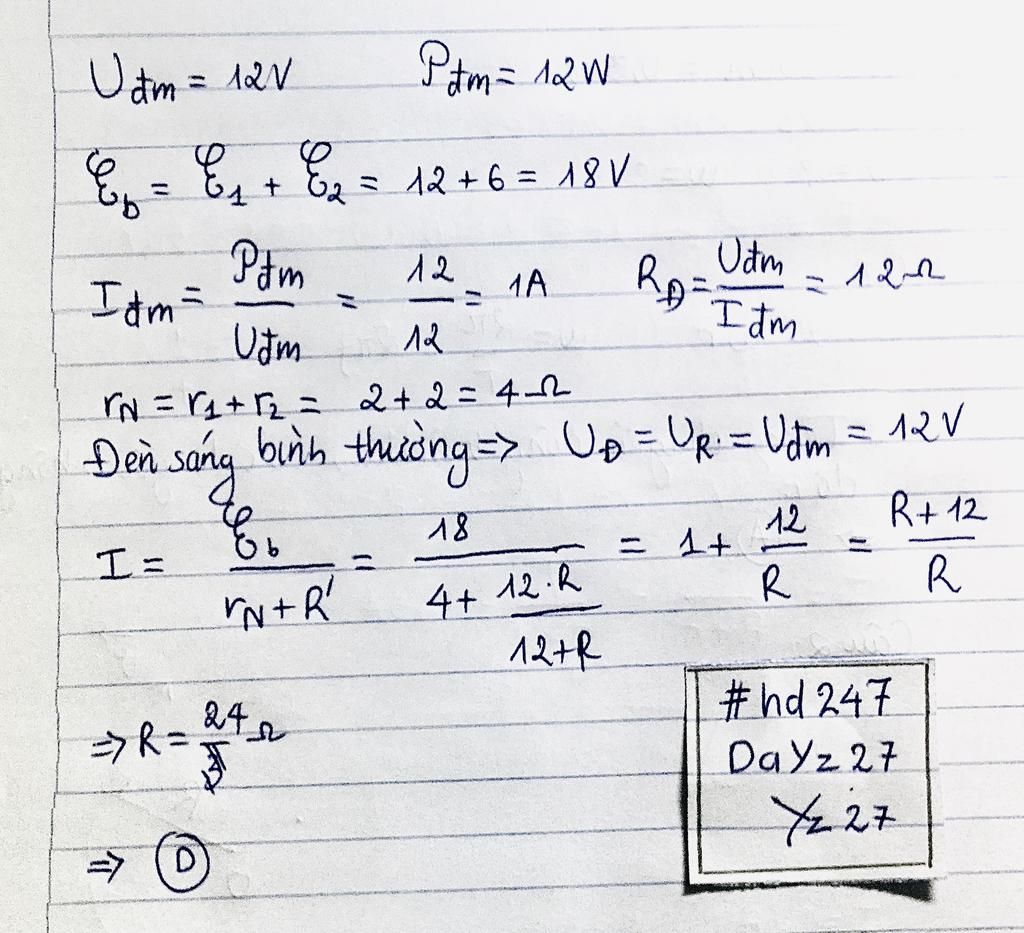 Uđm = 12V Pđm = 12W
ℰb = ℰ1 + ℰ2 = 12 + 6 = 18 V
Iđm = Pđm/Uđm = 12/12 = 1A RĐ = Uđm/Iđm = 12Ω
rN = r1 + r2 = 2 + 2 = 4Ω
Đèn sáng bình thường => UĐ = UR = Uđm = 12V
I = ℰb/(rN + R') = 18/(4 + 12.R/(12+R)) = 1 + 12/R = (R + 12)/R
=> R = 24/ Ω
=> D
#hd247
DaYz 27
Yz 27